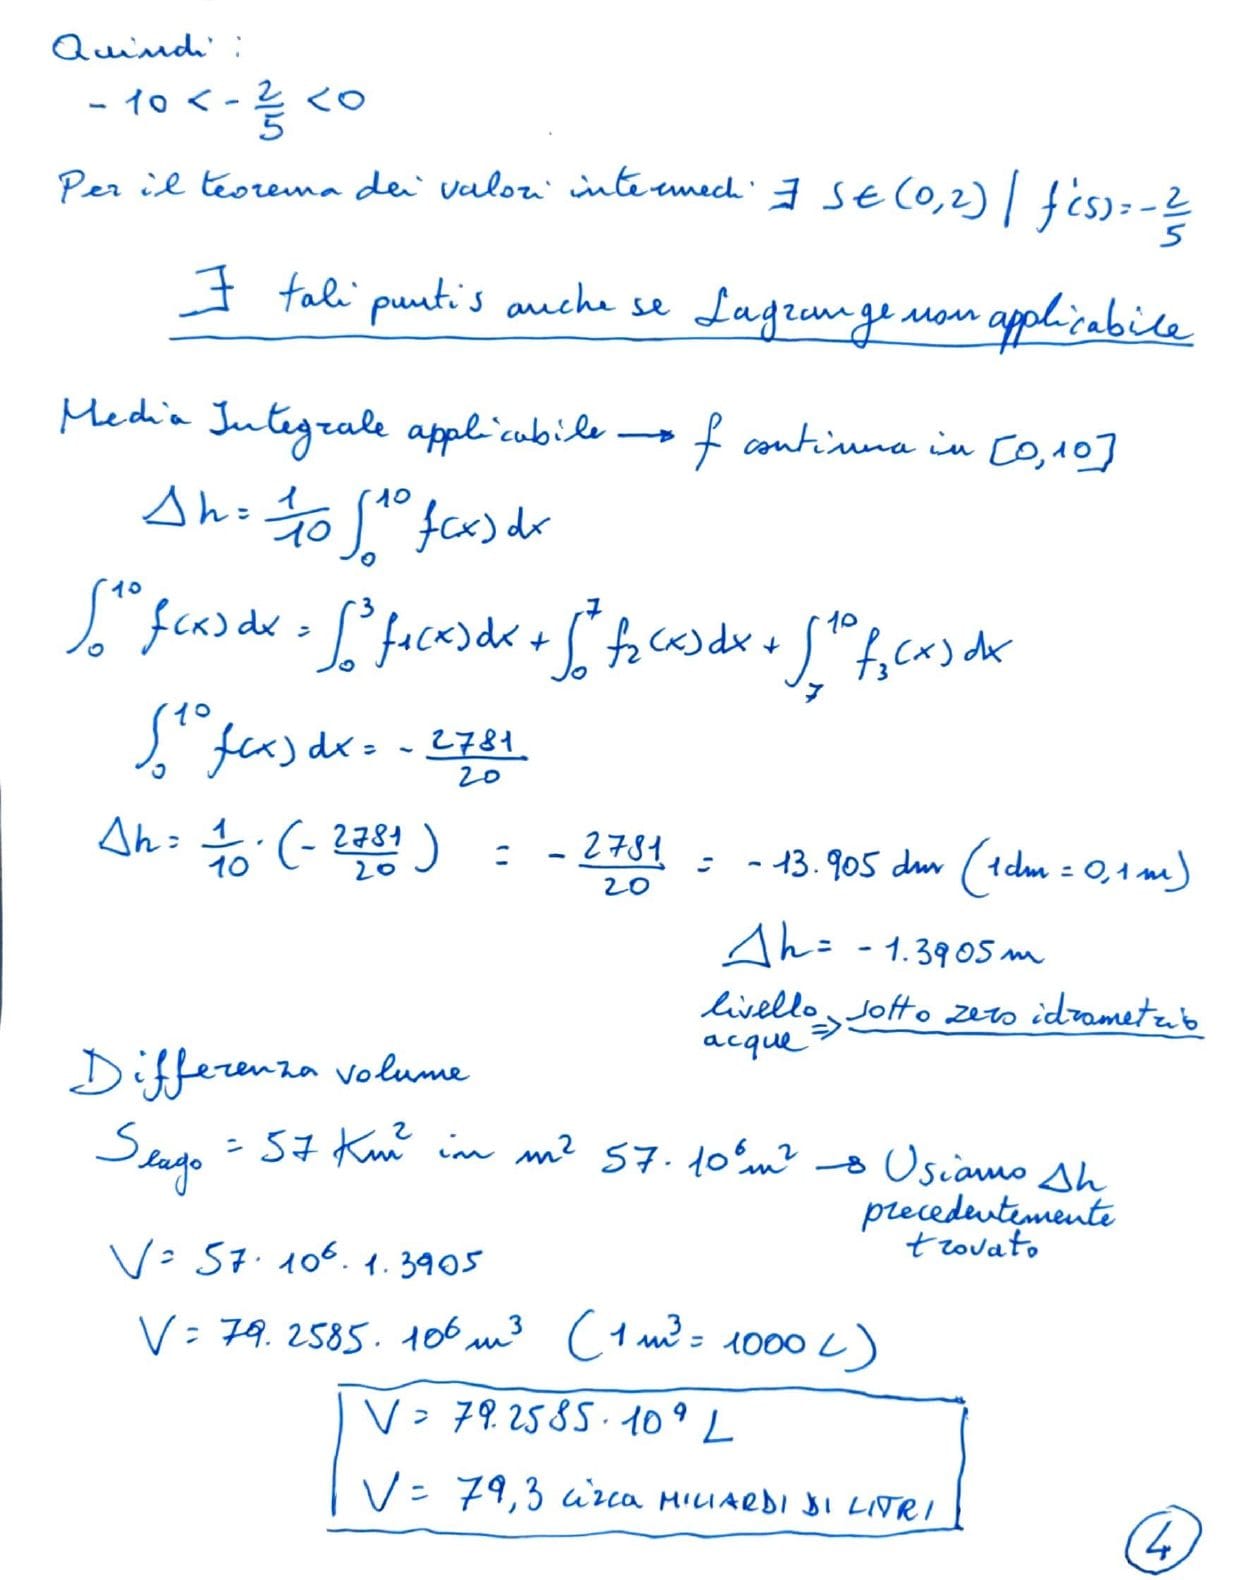 Quindi:
-10 < -2/5 < 0
Per il teorema dei valori intermedi ∃ S∈(0,2) | f'(s)=-2/5
∃ tali punti s anche se Lagrange non applicabile
Media Integrale applicabile → f continua in [0,10]
Δh = 1/10 ∫₀¹⁰ f(x) dx
∫₀¹⁰ f(x) dx = ∫₀³ f₁(x) dx + ∫₀⁷ f₂(x) dx + ∫₇¹⁰ f₃(x) dx
∫₀¹⁰ f(x) dx = -2781/20
Δh = 1/10 · (-2781/20) = -2781/20 = -13.905 dm (1dm = 0,1 m)
Δh = -1.3905 m
livello acque ⇒ sotto zero idrometrico
Differenza volume
S_lago = 57 Km² in m² 57·10⁶ m² → Usiamo Δh
precedentemente
trovato
V = 57·10⁶·1.3905
V = 79.2585·10⁶ m³ (1 m³ = 1000 L)
V = 79.2585·10⁹ L
V = 79,3 circa MILIARDI DI LITRI
4